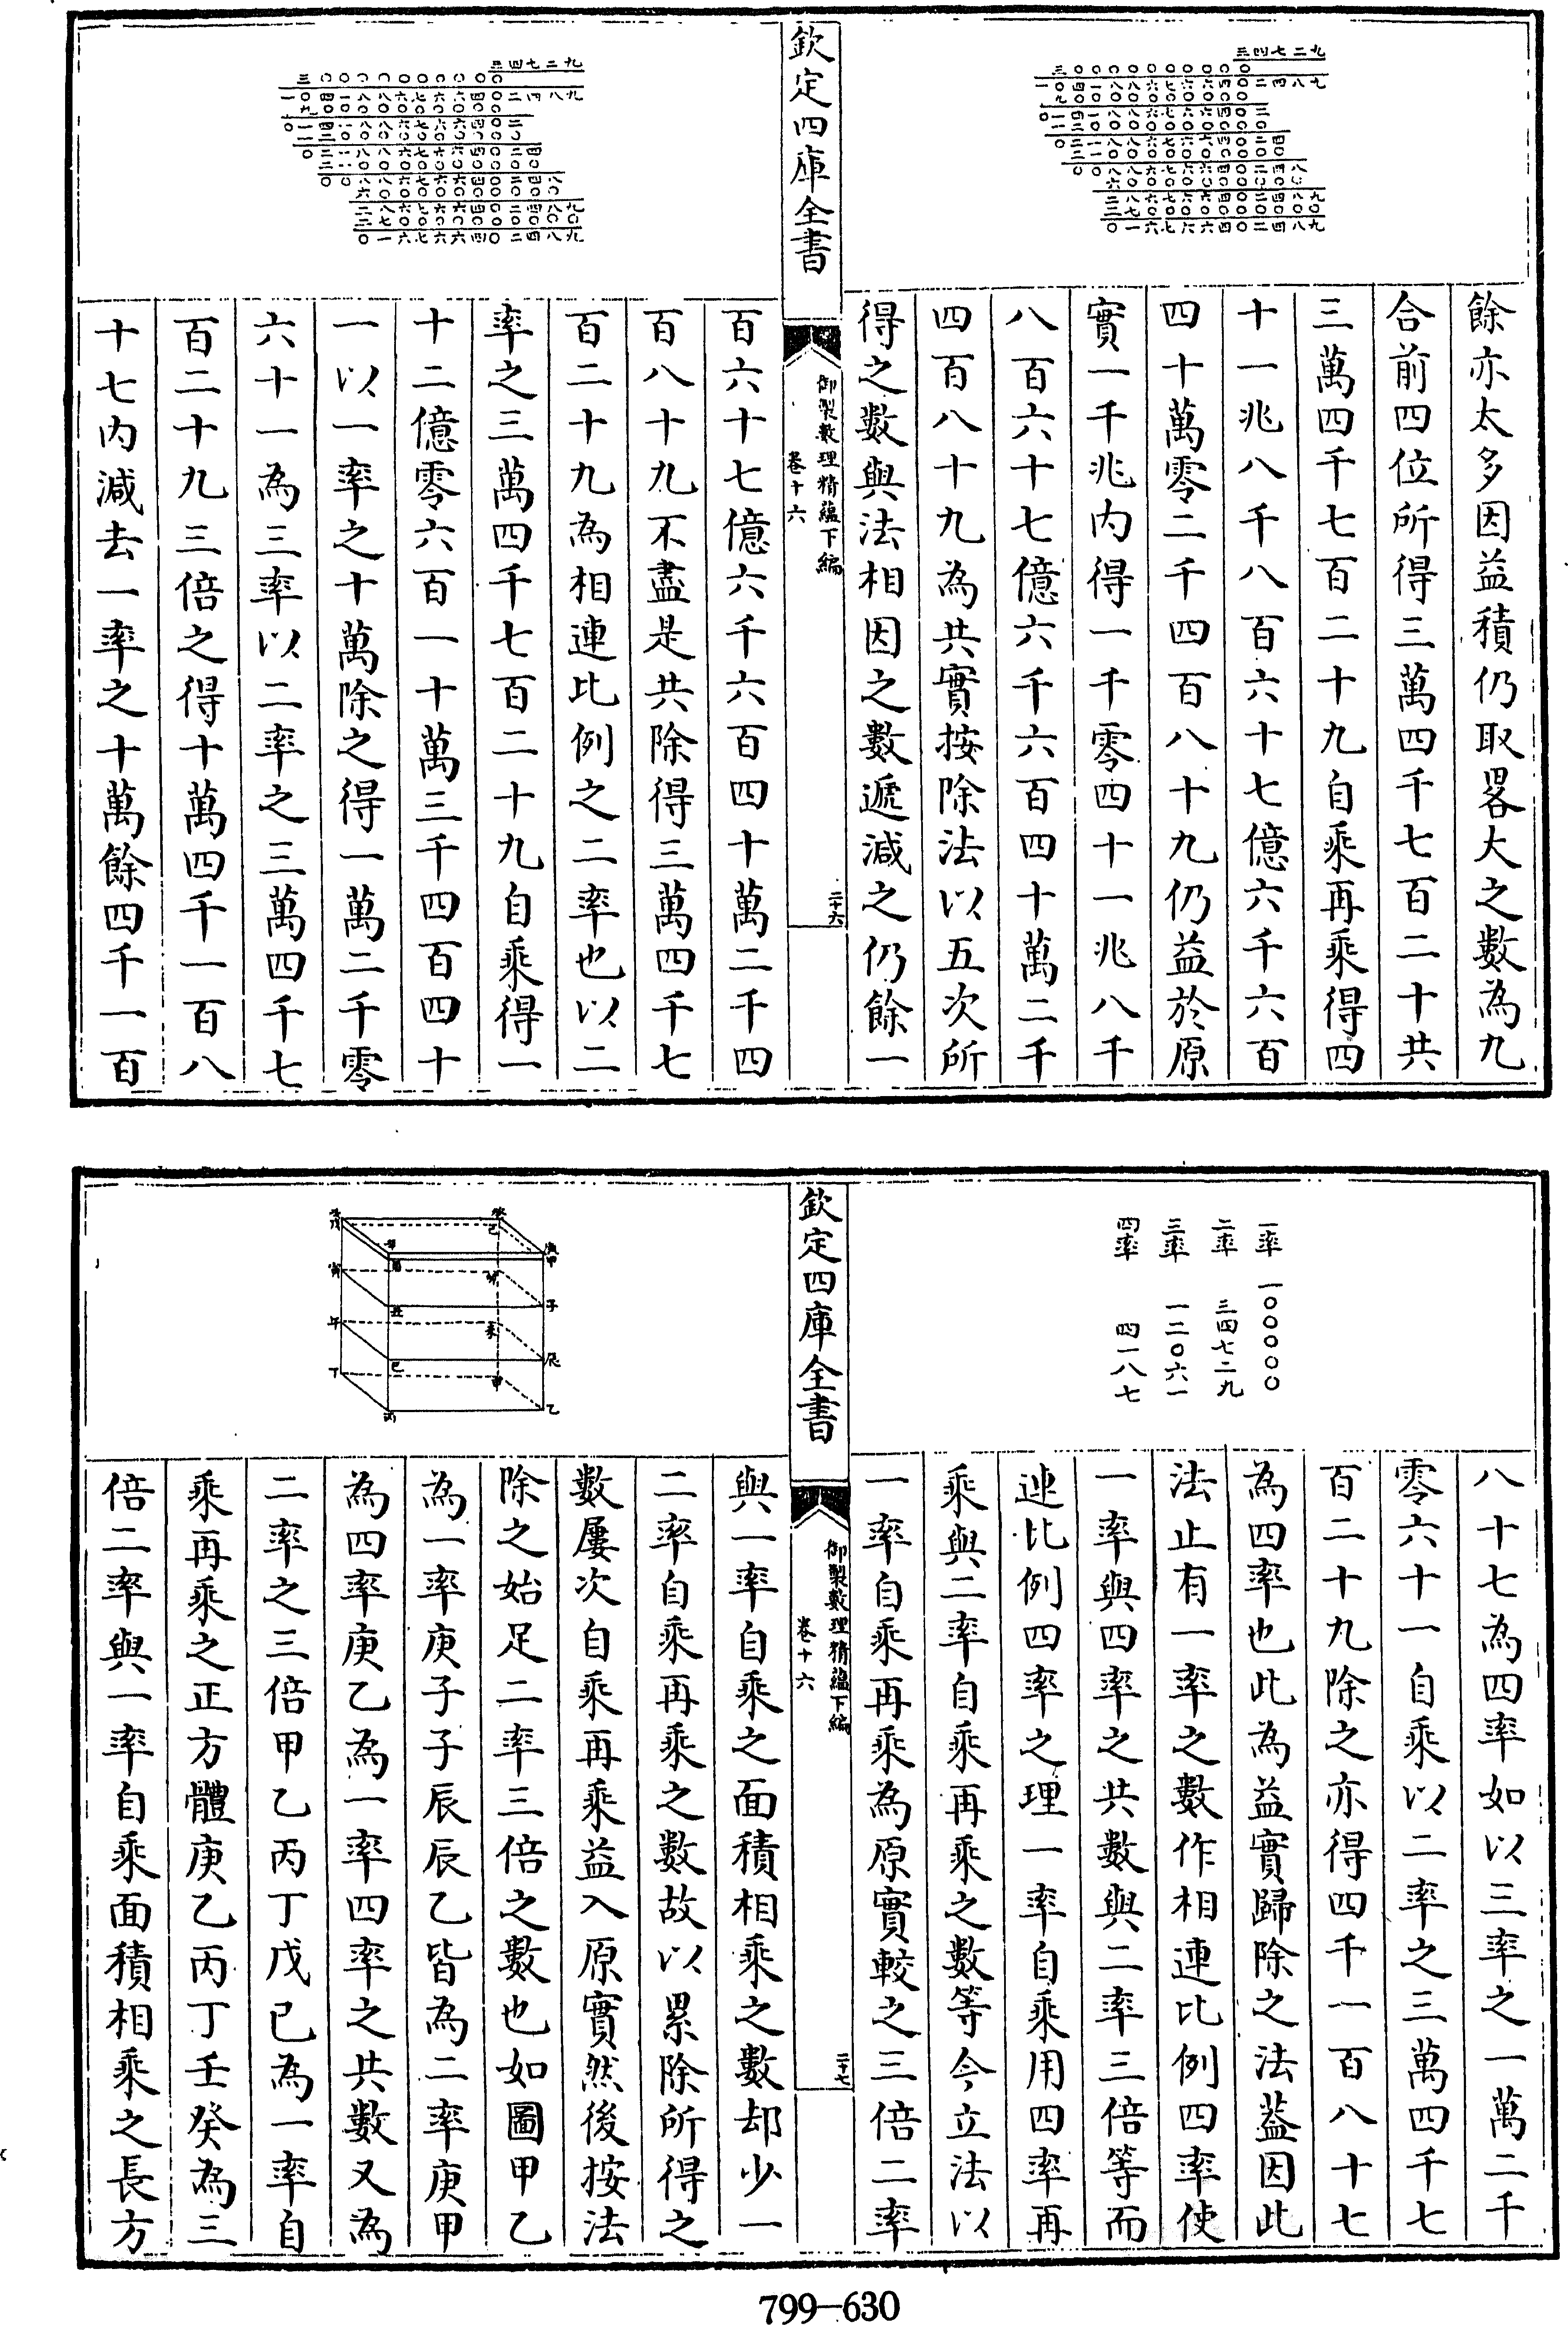 三四七二九
餘亦太多因益積仍取畧大之數為九
合前四位所得三萬四千七百二十共
三萬四千七百二十九自乘再乘得四
十一兆八千八百六十七億六千六百
四十萬零二千四百八十九仍益於原
實一千兆内得一千零四十一兆八千
八百六十七億六千六百四十萬二千
四百八十九為共實按除法以五次所
得之數與法相因之數遞減之仍餘一
欽定四庫全書
御製數理精蘊下編
卷十六
二十六
三四七二九
百六十七億六千六百四十萬二千四
百八十九不盡是共除得三萬四千七
百二十九為相連比例之二率也以二
率之三萬四千七百二十九自乘得一
十二億零六百一十萬三千四百四十
一以一率之十萬除之得一萬二千零
六十一為三率以二率之三萬四千七
百二十九三倍之得十萬四千一百八
十七内減去一率之十萬餘四千一百
一率 一〇〇〇〇〇
二率 三四七二九
三率 一二〇六一
四率 四一八七
八十七為四率如以三率之一萬二千
零六十一自乘以二率之三萬四千七
百二十九除之亦得四千一百八十七
為四率也此為益實歸除之法葢因此
法止有一率之數作相連比例四率使
一率與四率之共數與二率三倍等而
連比例四率之理一率自乘用四率再
乘與二率自乘再乘之數等今立法以
一率自乘再乘為原實較之三倍二率
欽定四庫全書
御製數理精蘊下編
卷十六
二十七
與一率自乘之面積相乘之數却少一
二率自乘再乘之數故以累除所得之
數屢次自乘再乘益入原實然後按法
除之始足二率三倍之數也如圖甲乙
為一率庚子子辰辰乙皆為二率庚甲
為四率庚乙為一率四率之共數又為
二率之三倍甲乙丙丁戊已為一率自
乘再乘之正方體庚乙丙丁壬癸為三
倍二率與一率自乘面積相乘之長方
799-630